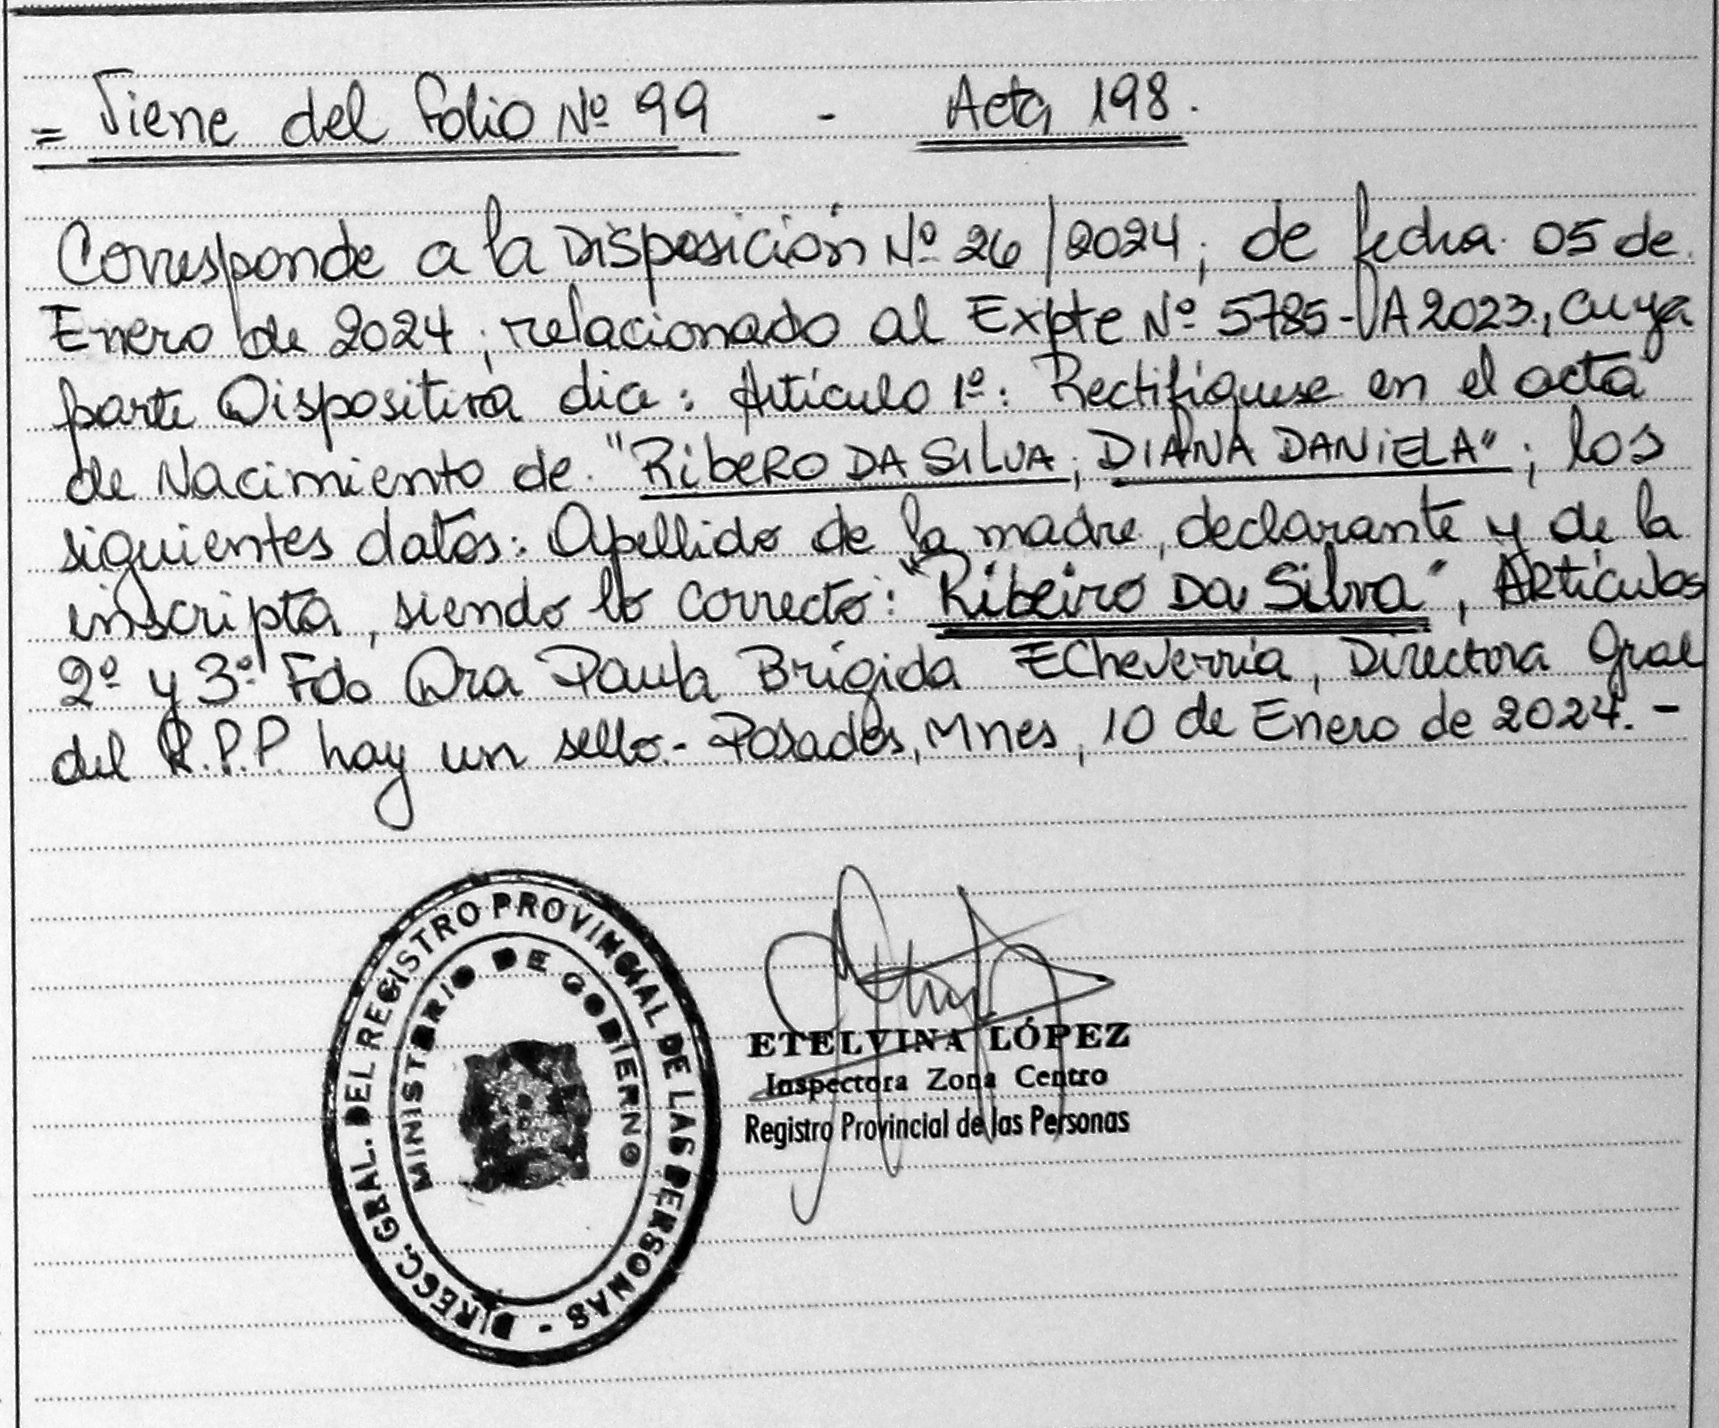 = Viene del folio Nº 99 - Acta 198.
Corresponde a la Disposición Nº 26/2024, de fecha 05 de
Enero de 2024, relacionado al Expte Nº 5785-A 2023, cuya
parte Dispositiva dice: Artículo 1º: Rectifíquese en el acta
de Nacimiento de "RibeRO DA SILVA, DIANA DANIELA", los
siguientes datos: Apellido de la madre, declarante y de la
inscripta, siendo lo correcto: "Ribeiro Da Silva", Artículos
2º y 3º Fdo Dra Paula Brígida Echeverría, Directora Gral
del R.P.P. hay un sello.- Posadas, Mnes, 10 de Enero de 2024.-
DIRECC. GRAL. DEL REGISTRO PROVINCIAL DE LAS PERSONAS -
MINISTERIO DE GOBIERNO
ETELVINA LÓPEZ
Inspectora Zona Centro
Registro Provincial de las Personas